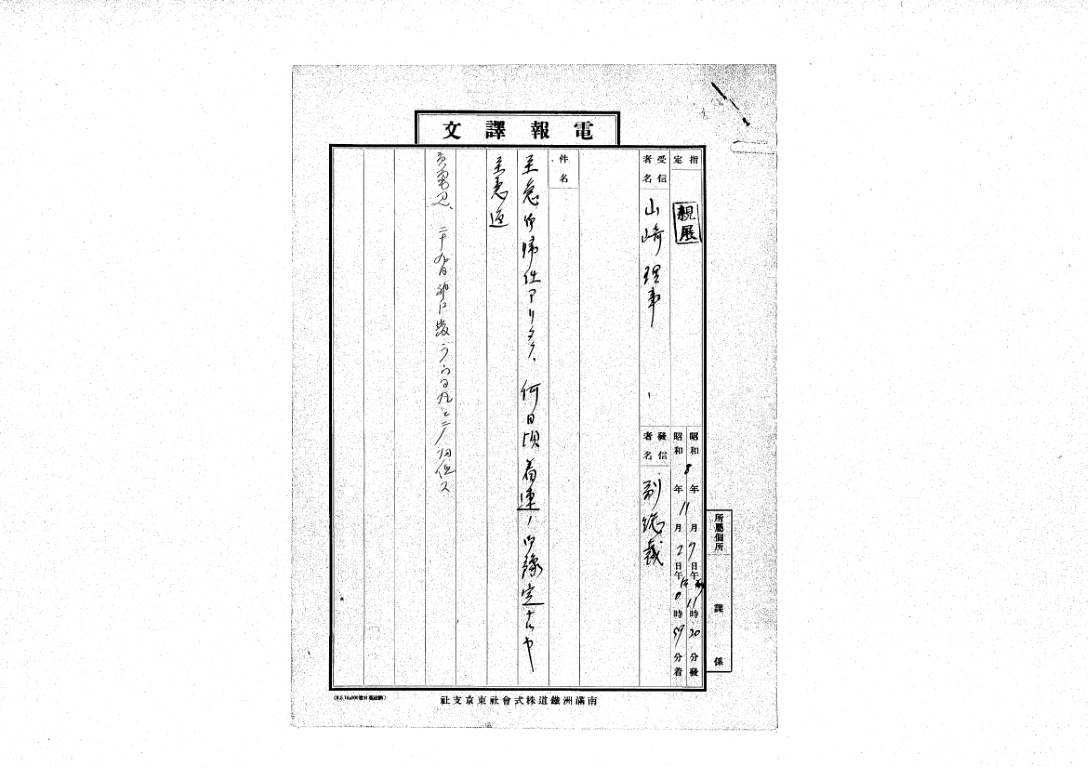 電報譯文
指定
親展
昭和8年11月7日午前11時20分發
昭和 年 月 日午後0時57分着
受信者名
山崎理事
發信者名
副総裁
件名
至急御帰任アリタク、何日頃着連ノ御豫定ナルヤ
至急返
二十九日神戸發
所屬個所
課
係
南滿洲鐵道株式會社東京支社